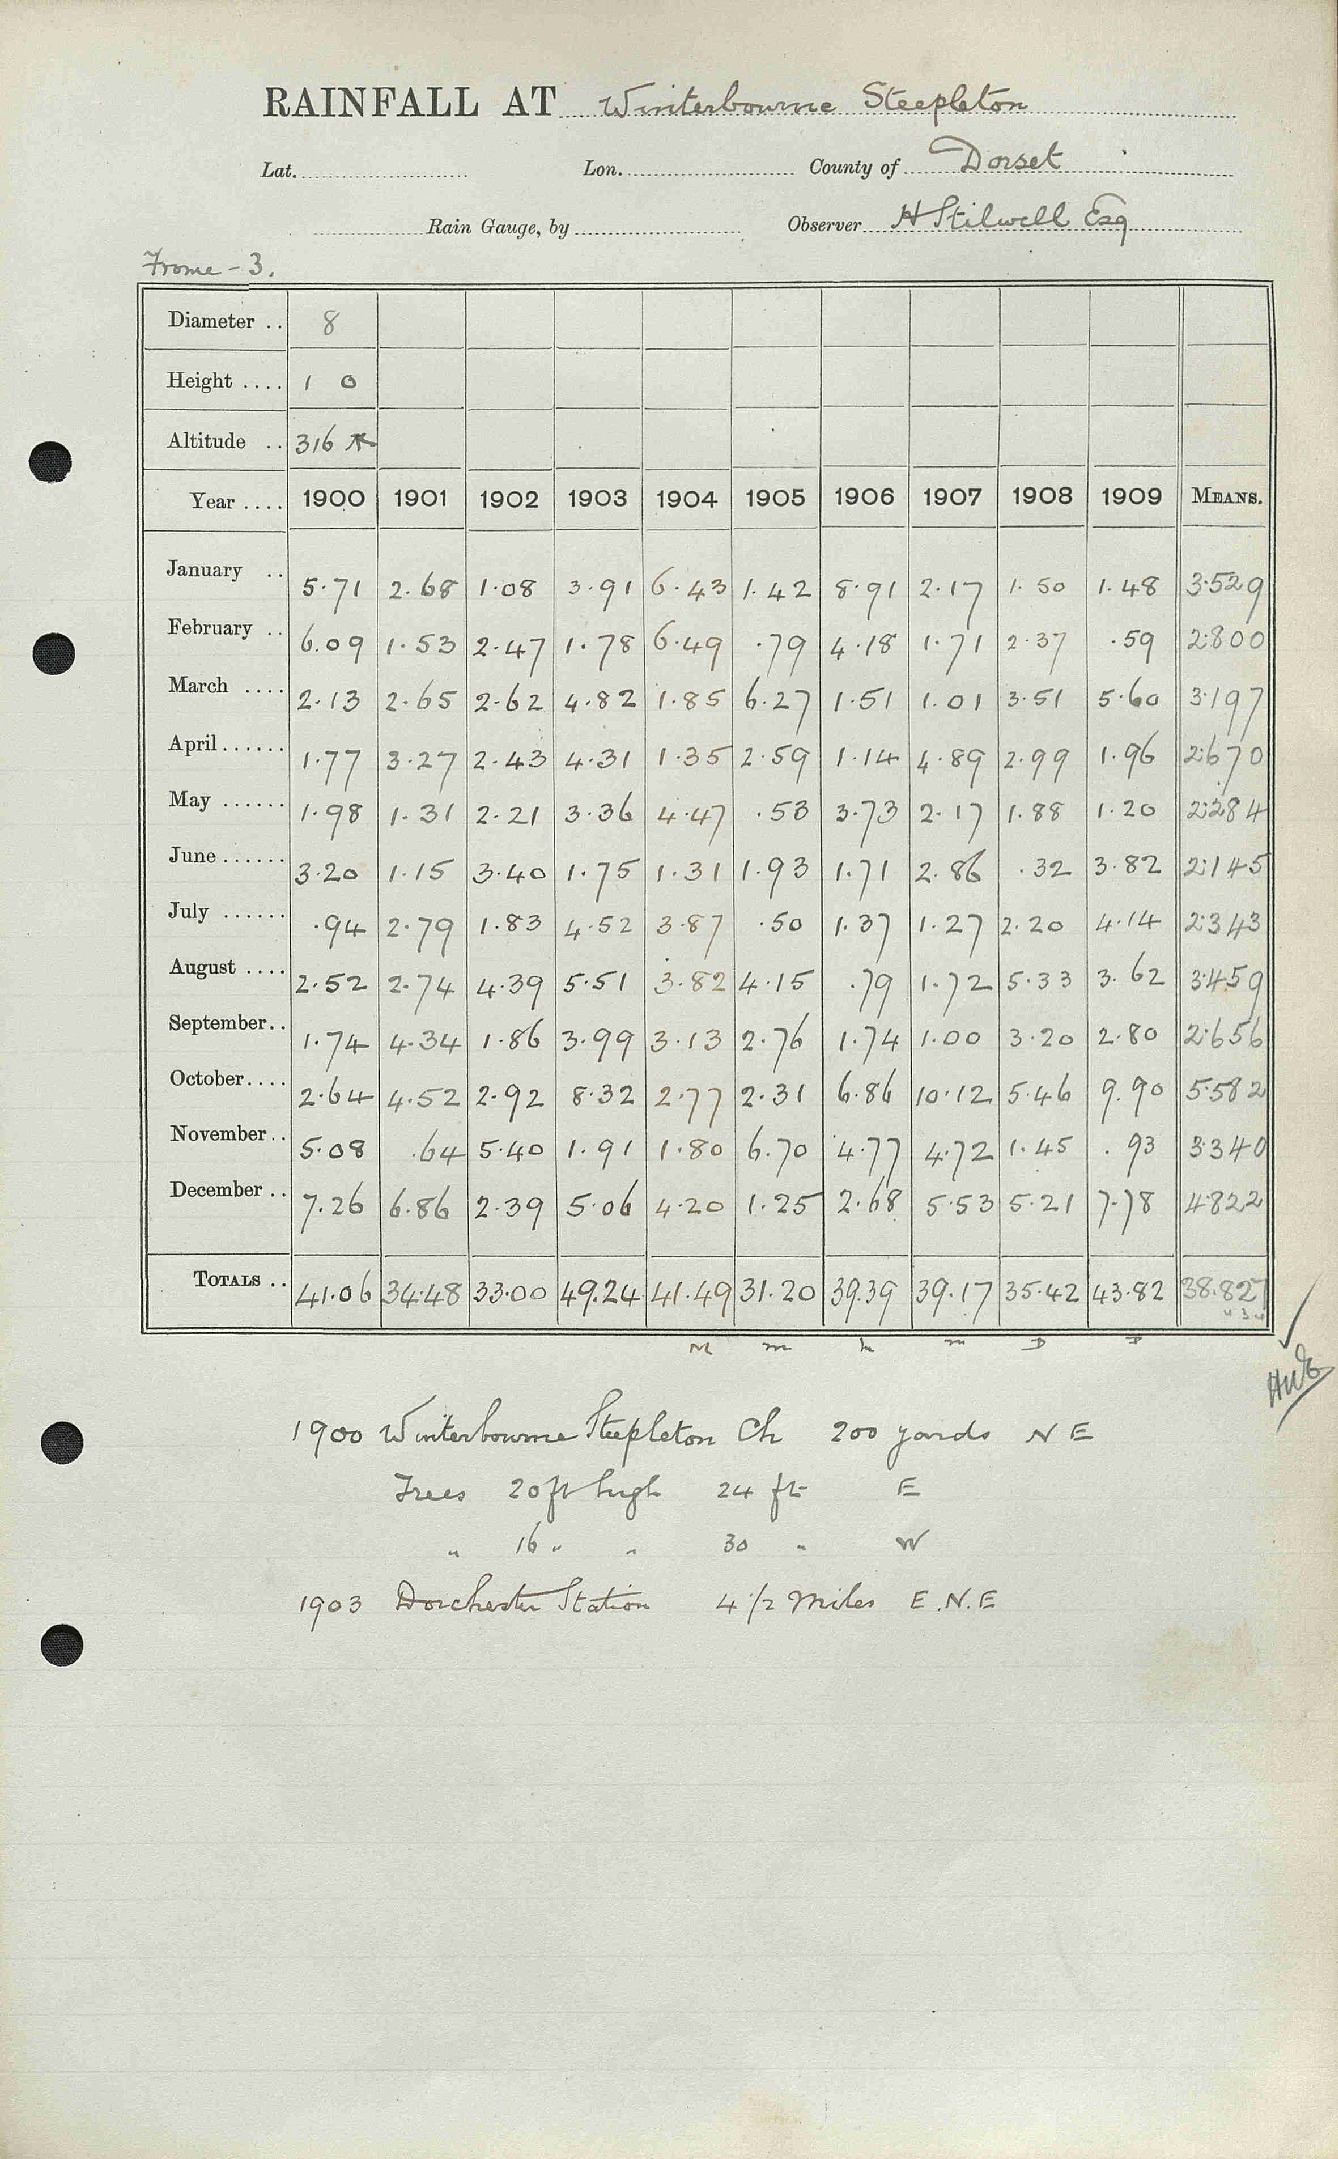 RAINFALL AT Winterbourne Steepleton
Lat. Lon. County of Dorset
Rain Gauge, by Observer H Stilwell Esq
Frome - 3.
Diameter .. 8
Height .... 1 0
Altitude .. 316
Year .... 1900 1901 1902 1903 1904 1905 1906 1907 1908 1909 MEANS.
January .. 5.71 2.68 1.08 3.91 6.43 1.42 8.91 2.17 1.50 1.48 3.529
February .. 6.09 1.53 2.47 1.78 6.49 .79 4.18 1.71 2.37 .59 2.800
March .... 2.13 2.65 2.62 4.82 1.85 6.27 1.51 1.01 3.51 5.60 3.197
April ...... 1.77 3.27 2.43 4.31 1.35 2.59 1.14 4.89 2.99 1.96 2.670
May ...... 1.98 1.31 2.21 3.36 4.47 .53 3.73 2.17 1.88 1.20 2.284
June ...... 3.20 1.15 3.40 1.75 1.31 1.93 1.71 2.86 .32 3.82 2.145
July ...... .94 2.79 1.83 4.52 3.87 .50 1.37 1.27 2.20 4.14 2.343
August .... 2.52 2.74 4.39 5.51 3.82 4.15 .79 1.72 5.33 3.62 3.459
September.. 1.74 4.34 1.86 3.99 3.13 2.76 1.74 1.00 3.20 2.80 2.656
October.... 2.64 4.52 2.92 8.32 2.77 2.31 6.86 10.12 5.46 9.90 5.582
November.. 5.08 .64 5.40 1.91 1.80 6.70 4.77 4.72 1.45 .93 3.340
December .. 7.26 6.86 2.39 5.06 4.20 1.25 2.68 5.53 5.21 7.78 4.822
TOTALS .. 41.06 34.48 33.00 49.24 41.49 31.20 39.39 39.17 35.42 43.82 38.827
M m m D P
1900 Winterbourne Steepleton Ch 200 yards N E
Trees 20 ft high 24 ft E
" 16 " " 30 " W
1903 Dorchester Station 4 1/2 Miles E.N.E